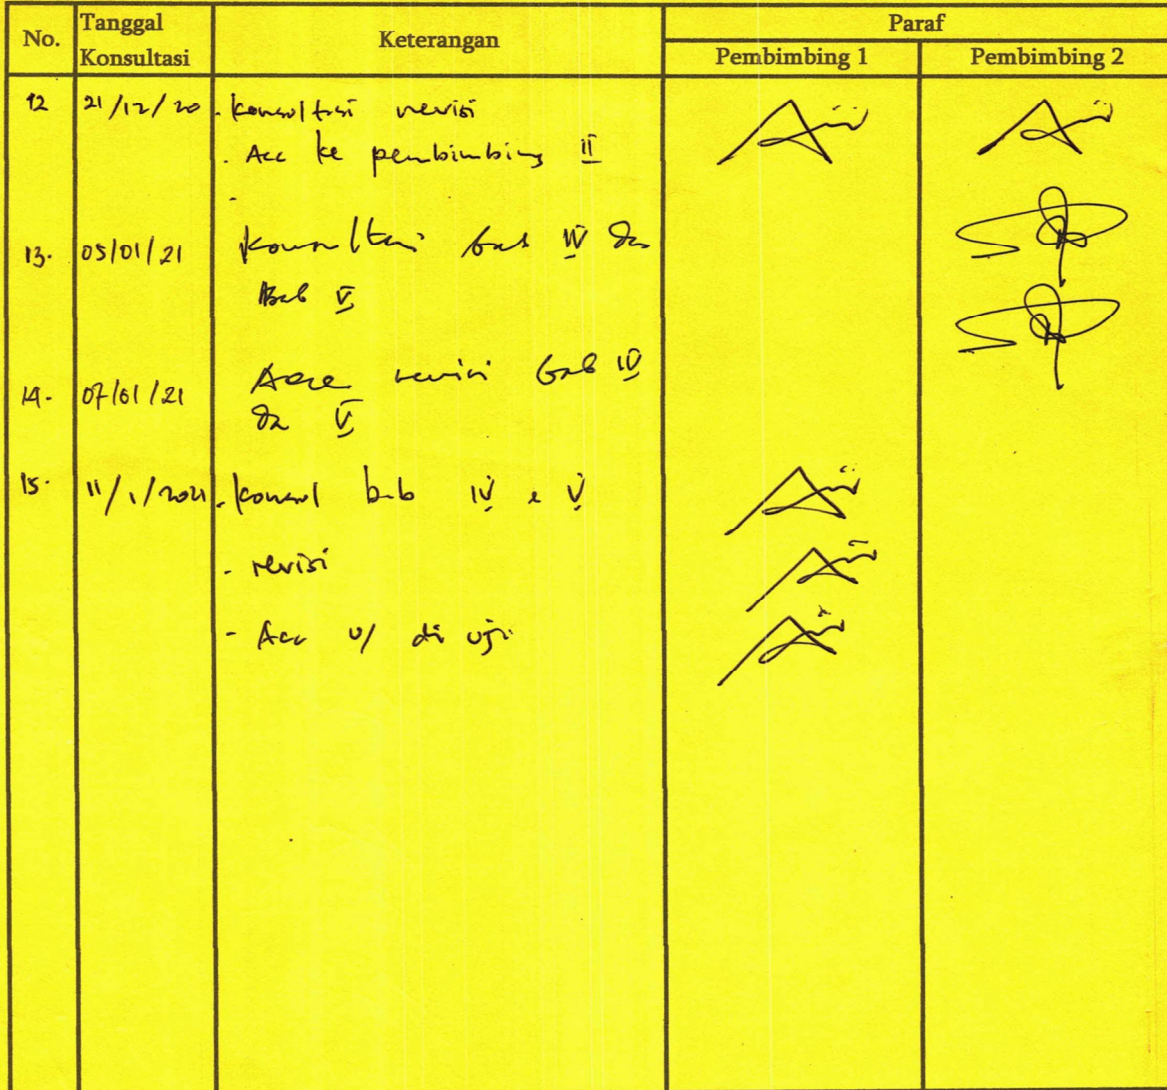 No. Tanggal Konsultasi Keterangan Paraf
Pembimbing 1 Pembimbing 2
12 21/12/20 . Konsultasi revisi
. Acc ke pembimbing II
13. 05/01/21 Konsultasi bab IV dan
Bab V
14. 07/01/21 revisi bab IV
dan V
15. 11/1/2021 . konsul bab IV & V
- revisi
- Acc u/ di uji